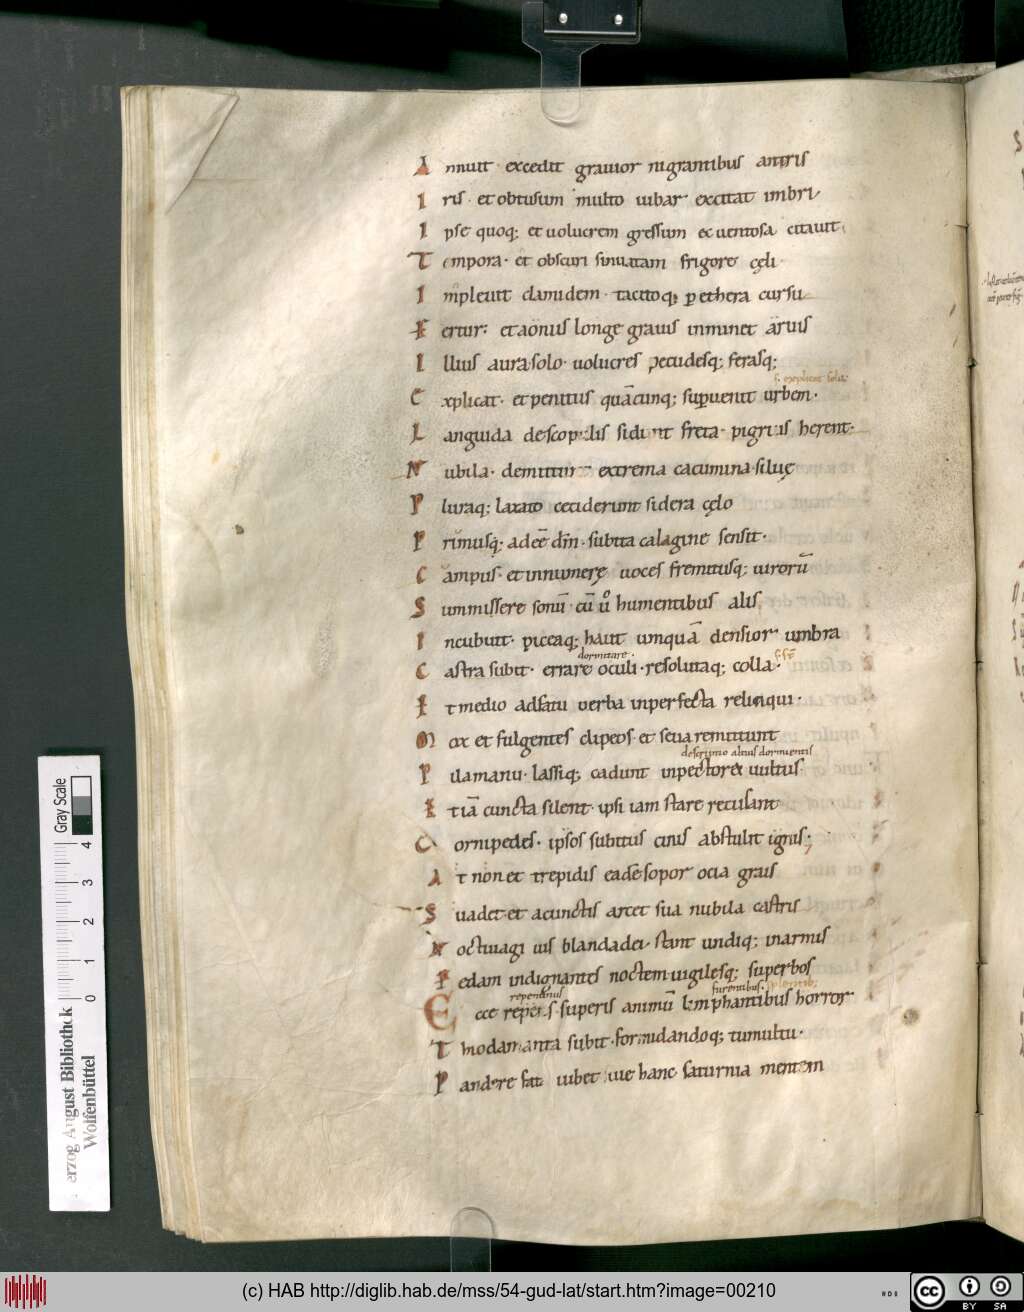 Annuit · excedit grauior nigrantibus antris
Iris · et obtusum multo iubar excitat imbri
Ipse quoq; et uolucrem gressum et uentosa citauit
Tempora · et obscuri sinuatam frigore cęli ·
Impleuit clamidem · tacitoq; p ethera cursu
Fertur: et aonus longe grauis inminet aruis
Illius aura · solo · uolucres pecudesq; ferasq;
Explicat · et penitus quācunq; supuenit urbem ·
Languida descopulis sidunt freta · pigrius herent ·
Nubila · demittunt extrema cacumina · siluę
Pluraq; laxato ceciderunt sidera cęlo
Primusq; adeē dm̄ · subita caligine sensit ·
Campus · et innumerę uoces fremitusq; uirorū
Summissere sonū · cū ů humentibus alis
Incubuit · piceaq; haut umquā densior umbra
dormitare ·
Castra subit · errare oculi · resolutaq; colla ·
Et medio adfatu uerba inperfecta relinqui ·
Mox et fulgentes clipeos · et seua remittunt
descriptio altius dormientis
Pila manu · lassiq; cadunt inpectore uultus
Et iā cuncta silent · ipsi iam stare recusant
Cornipedes · ipsos subitus cinis abstulit ignis ;
At non et trepidis eadē sopor ocia grais
Suadet · et acunctis arcet sua nubila castris
Noctiuagi uis blanda dei · stant undiq; inarmis
Fedam indignantes noctem uigilesq; superbos
repentinus furentibus ·
Ecce repens superis animū lymphantibus horror
Thiodamanta subit · formidandoq; tumultu ·
Pandere fata iubet siue hanc saturnia mentem
Gray Scale
4 3 2 1 0
Herzog August Bibliothek
Wolfenbüttel
(c) HAB http://diglib.hab.de/mss/54-gud-lat/start.htm?image=00210
cc BY SA